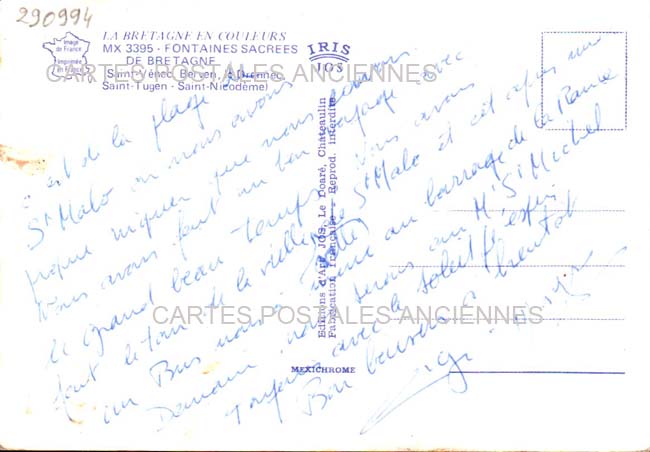 290994
LA BRETAGNE EN COULEURS
MX 3395 - FONTAINES SACREES
DE BRETAGNE
(Saint-Vénec, Berven, le Drennec,
Saint-Tugen - Saint-Nicodème)
Image
de France
Imprimée
en France
IRIS
JOS
CARTES POSTALES ANCIENNES
c'est de la plage de
St Malo où nous avons
pique niquer que nous écrivons
Nous avons fait un bon voyage avec
le grand beau temps, nous avons
fait le tour de la ville de St Malo et cet après midi
un Bus nous a au barrage de la Rance
Demain nous serons au Mt St Michel
Toujours avec le soleil j'espère
Bon baisers a bientot
CARTES POSTALES ANCIENNES
Editions d'Art JOS, Le Doaré, Chateaulin
Fabrication française - Reprod. interdite
MEXICHROME